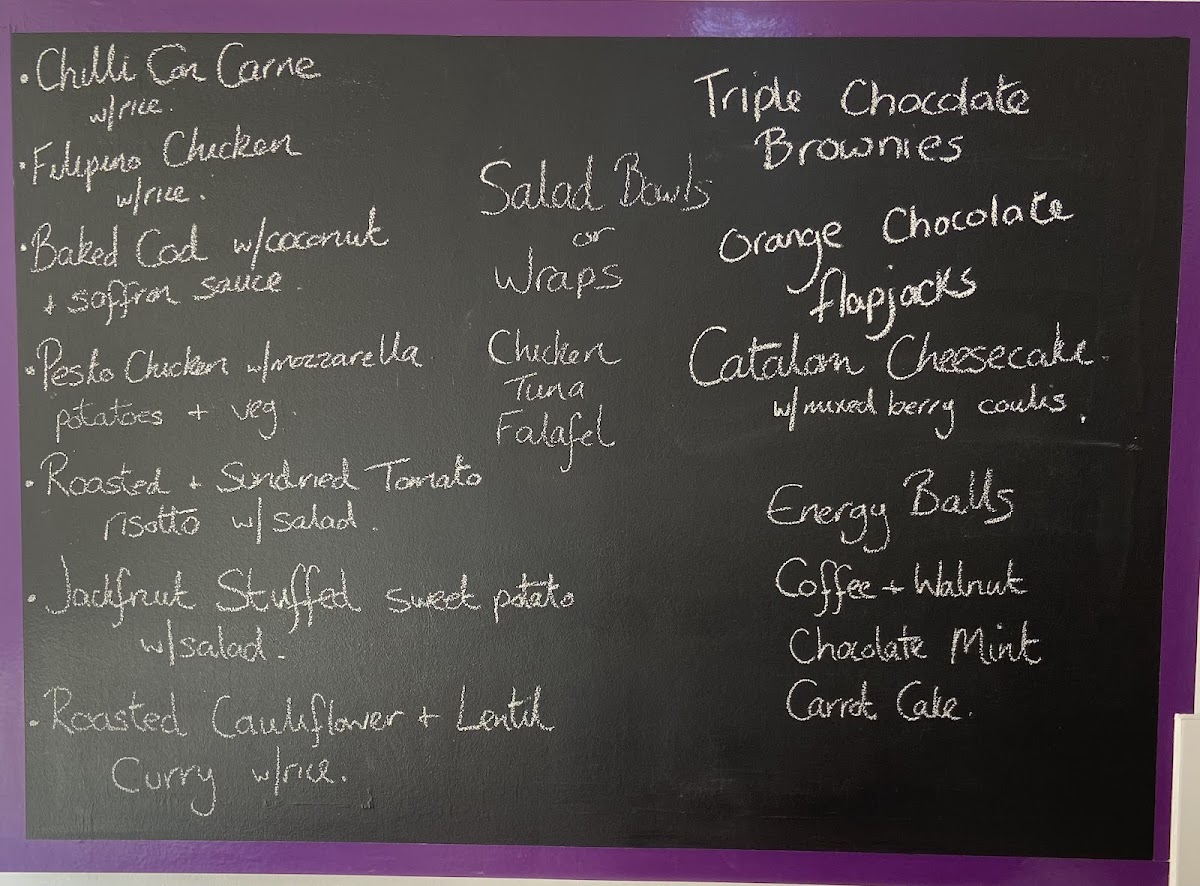 • Chilli Con Carne
w/rice.
• Filipino Chicken
w/rice.
• Baked Cod w/coconut
+ saffron sauce.
• Pesto Chicken w/mozzarella
potatoes + veg.
• Roasted + Sundried Tomato
risotto w/salad.
• Jackfruit Stuffed sweet potato
w/salad.
• Roasted Cauliflower + Lentil
Curry w/rice.
Salad Bowls
or
Wraps
Chicken
Tuna
Falafel
Triple Chocolate
Brownies
Orange Chocolate
flapjacks
Catalan Cheesecake.
w/mixed berry coulis.
Energy Balls
Coffee + Walnut
Chocolate Mint
Carrot Cake.